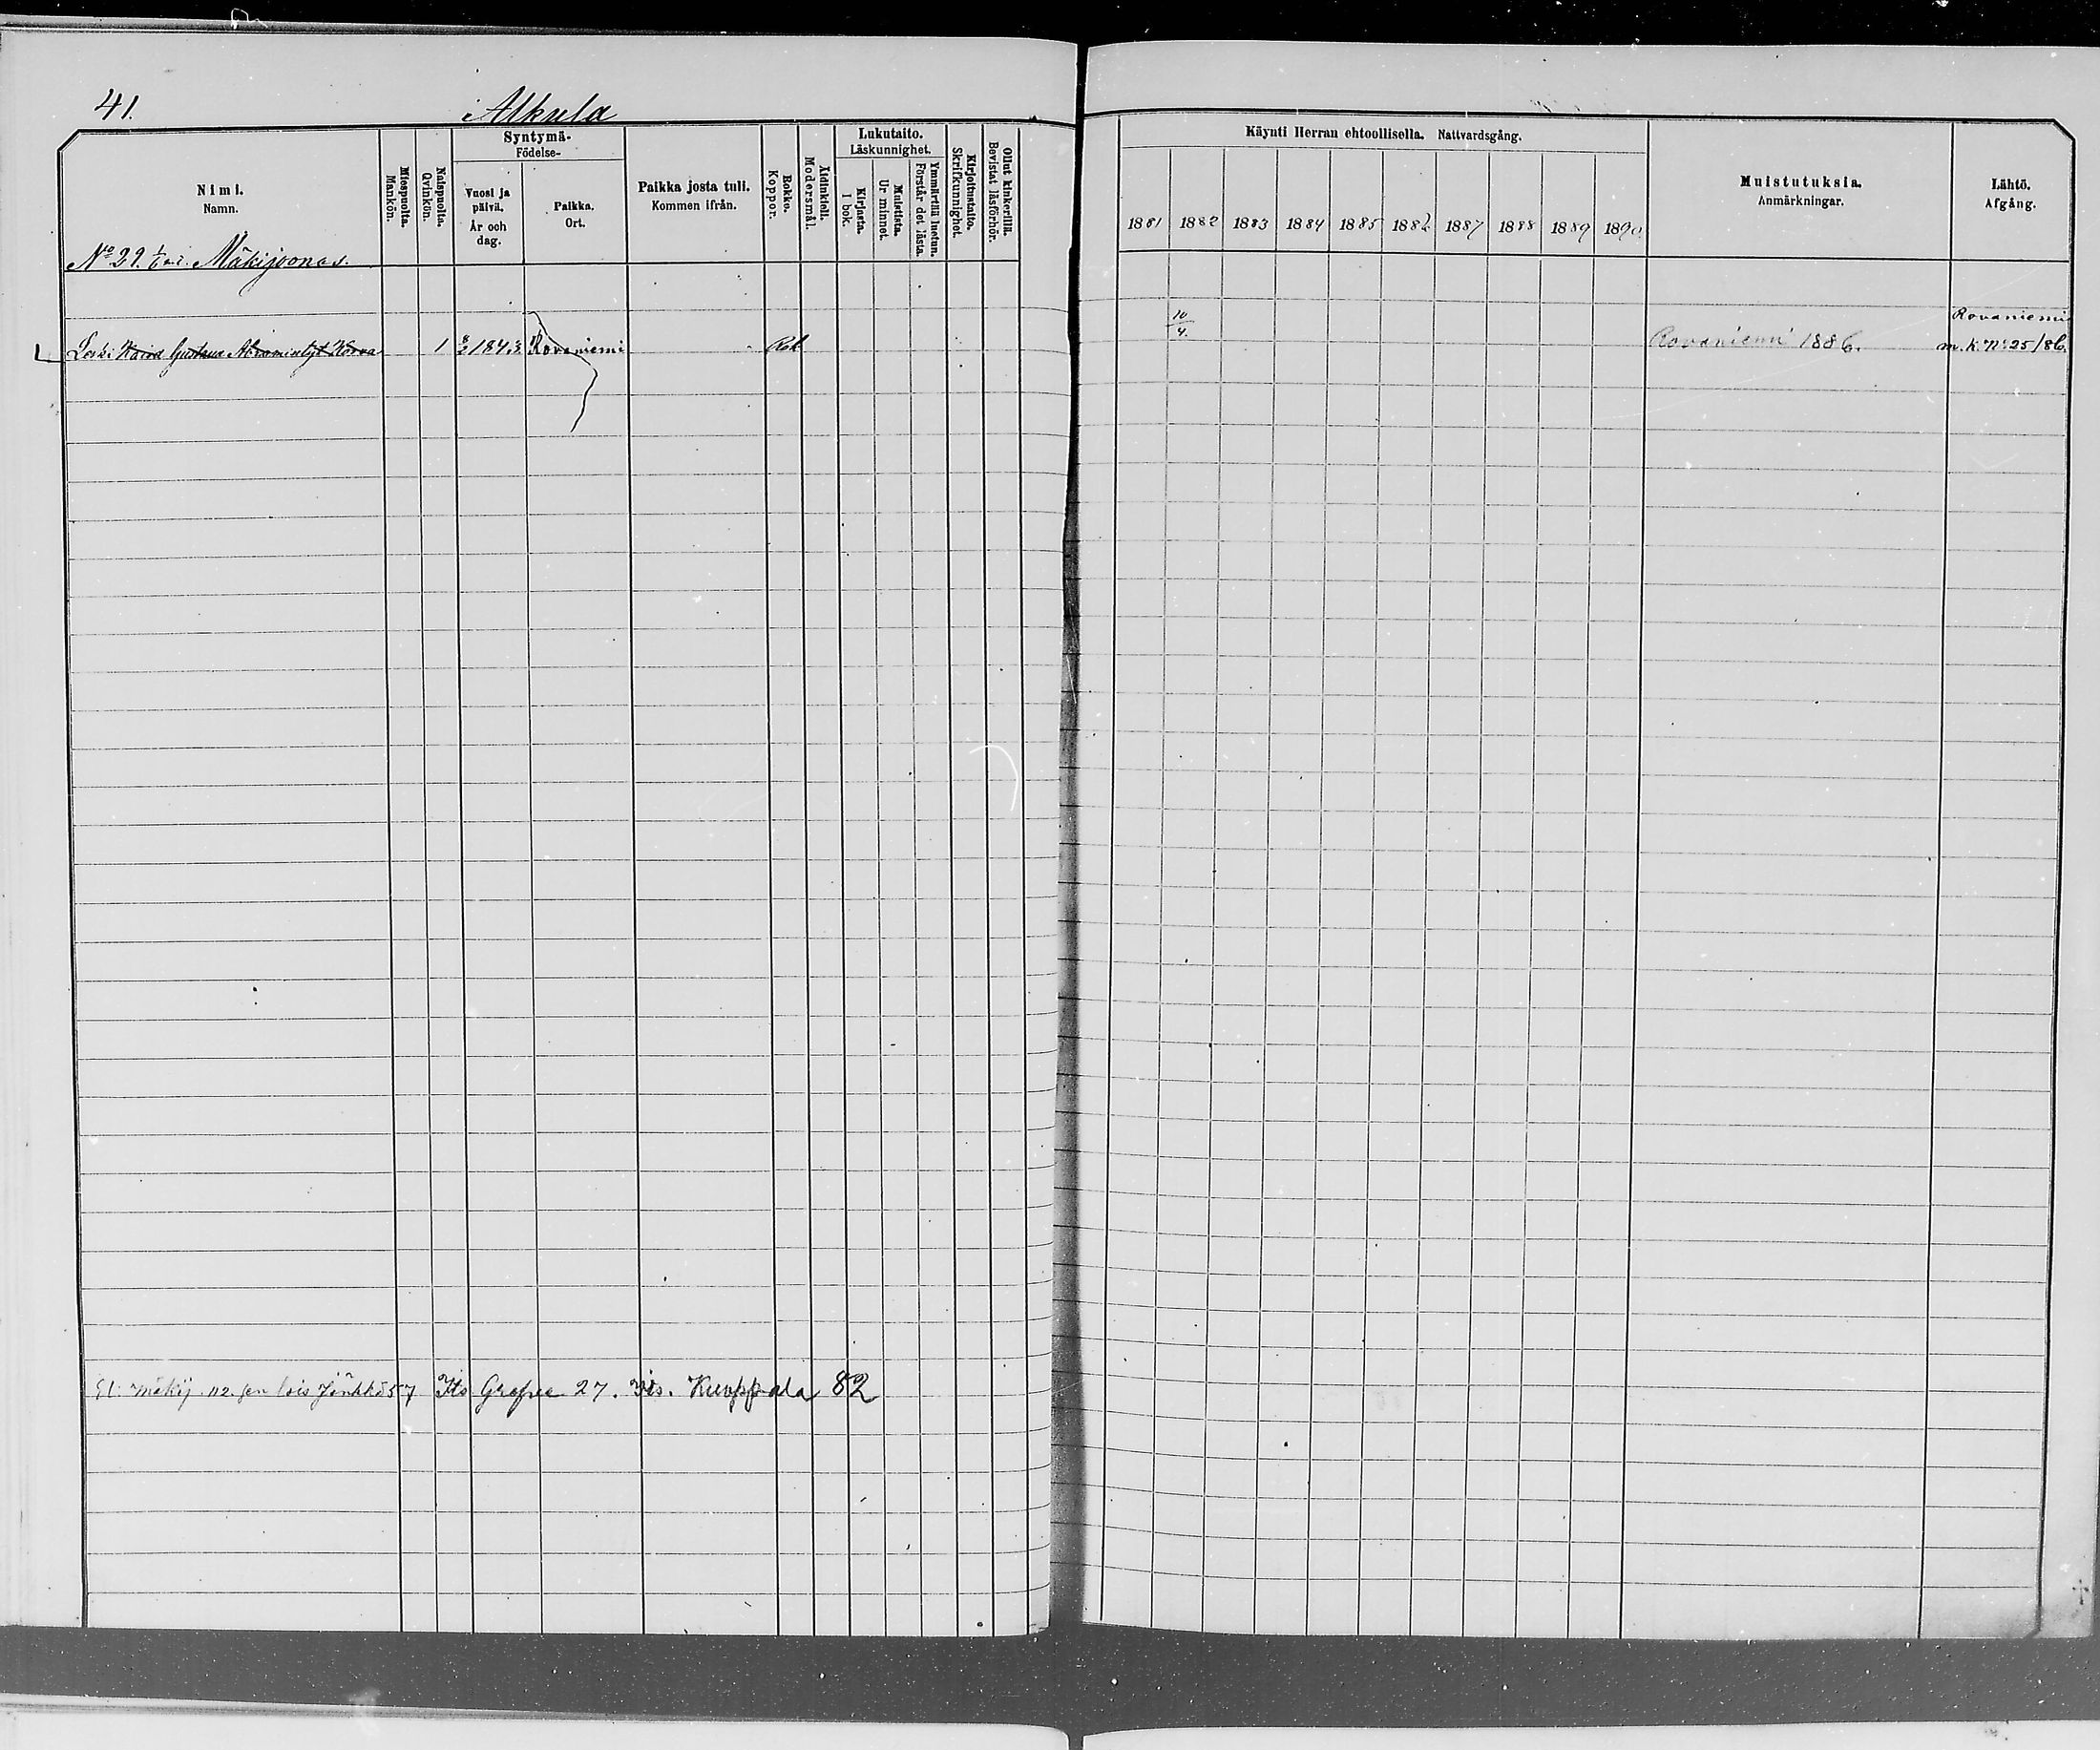 41. Alkula
Nimi.
Namn.
Miespuolta.
Mankön.
Naispuolta.
Qvinkön.
Syntymä-
Födelse-
Vuosi ja
päivä.
År och
dag.
Paikka.
Ort.
Paikka josta tuli.
Kommen ifrån.
Rokko.
Koppor.
Äidinkieli.
Modersmål.
Lukutaito.
Läskunnighet.
Kirjasta.
I bok.
Muistista.
Ur minnet.
Ymmärtää luetun.
Förstår det lästa.
Kirjoitustaito.
Skrifkunnighet.
Ollut kinkerillä.
Bevistat läsförhör.
Käynti Herran ehtoollisella. Nattvardsgång.
1881 1882 1883 1884 1885 1886 1887 1888 1889 1890
Muistutuksia.
Anmärkningar.
Lähtö.
Afgång.
No 29. Mäkijoonas.
Leski Kaisa Gustava Abramintyt Korva 1 1843 Rovaniemi Rok 10/4. Rovaniemi 1886. Rovaniemi
m. k. No 25/86.
Mäkij. 112. lois Jänkkä 57 Its. 27. Kuoppala 82